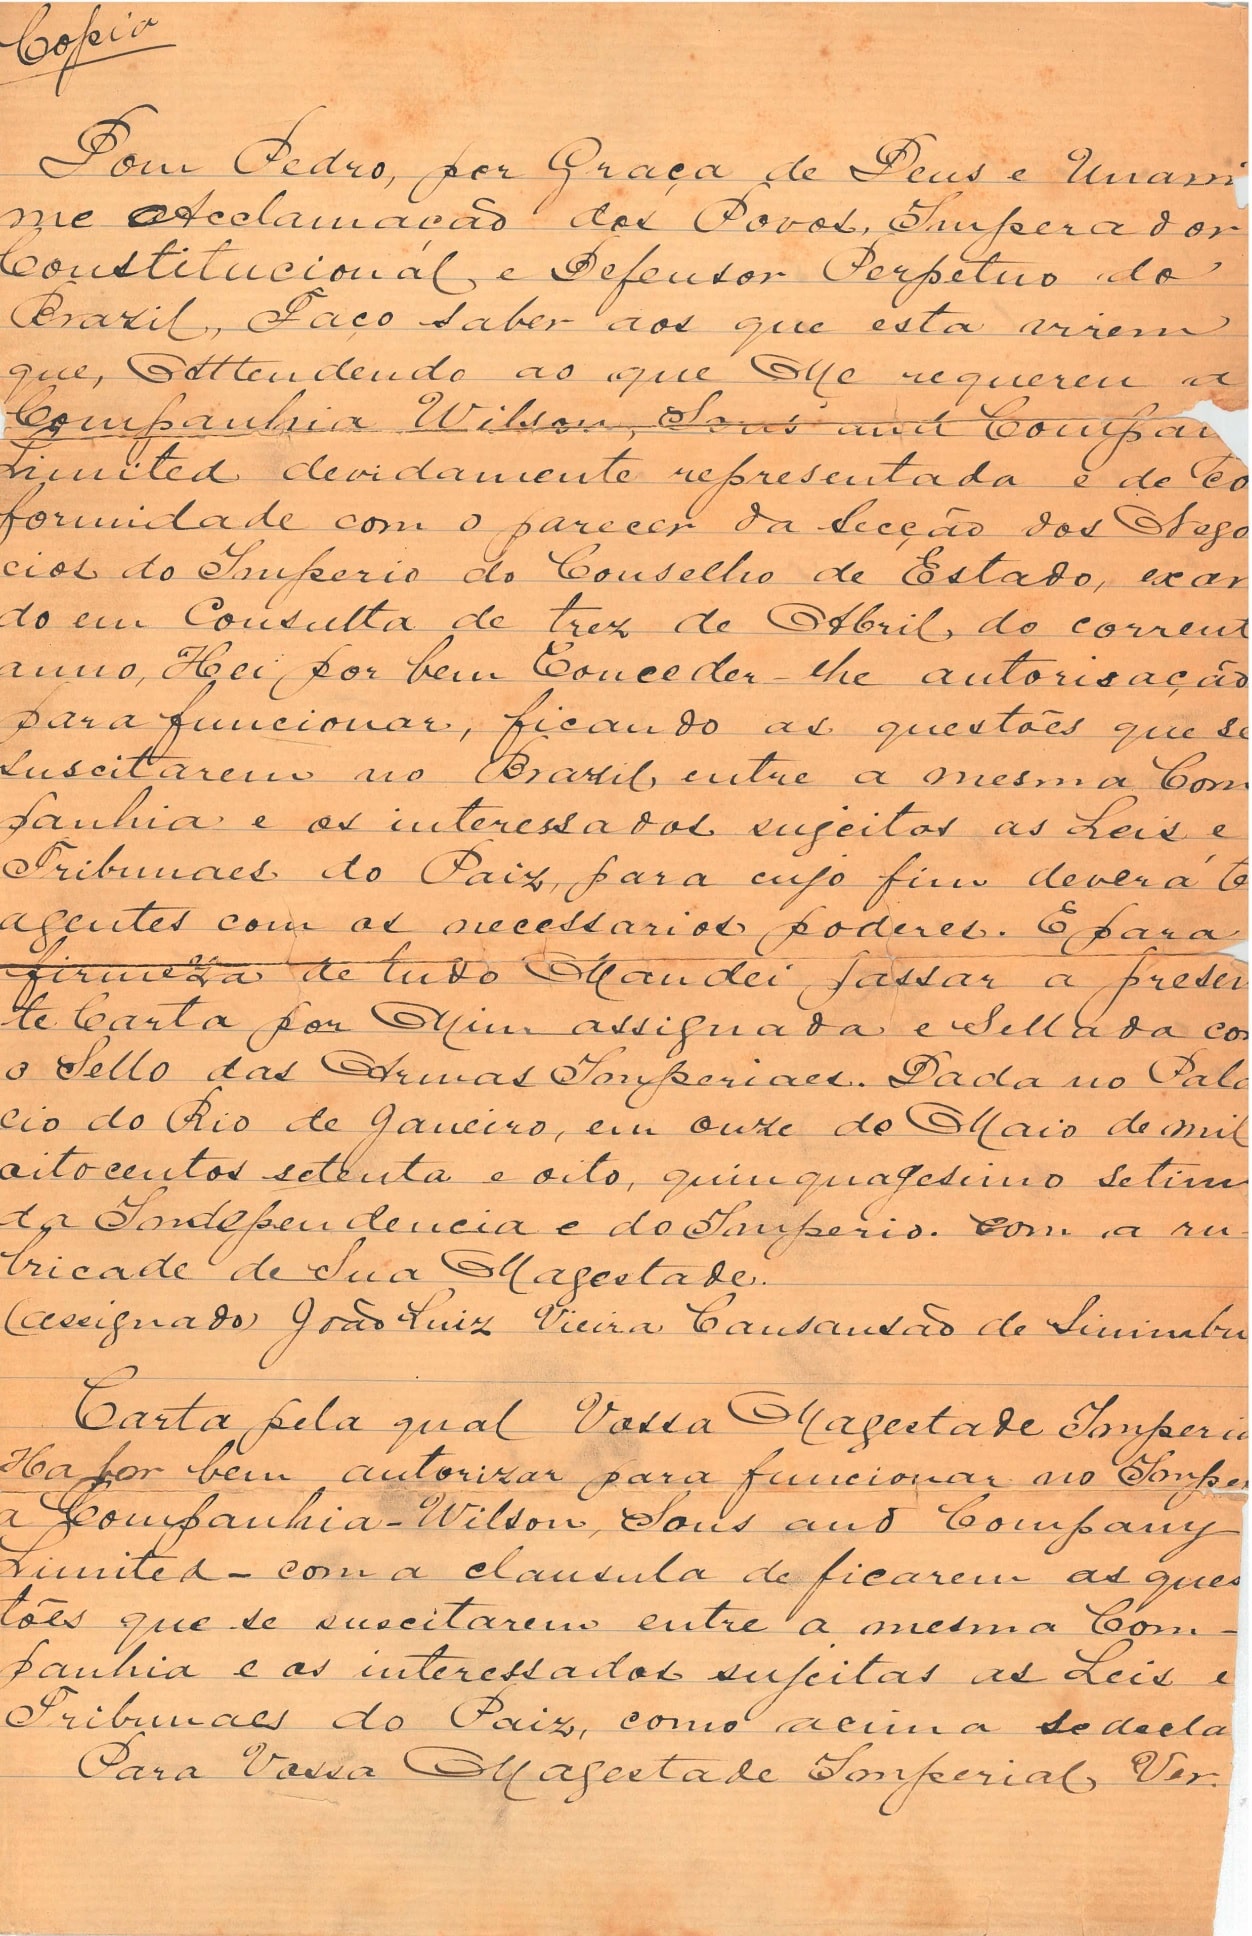 Copia
Dom Pedro, por Graça de Deus e Unani
me Acclamação dos Povos, Imperador
Constitucionál e Defensor Perpetuo do
Brazil, Faço saber aos que esta virem
que, Attendendo ao que Me requereu a
Companhia Wilson, Sons and Compan
Limited devidamente representada e de co
formidade com o parecer da Secção dos Nego
cios do Imperio do Conselho de Estado, exar
do em Consulta de trez de Abril do corrent
anno, Hei por bem Conceder-lhe autorisação
para funccionar, ficando as questões que se
suscitarem no Brazil entre a mesma Com
panhia e os interessados sugeitos as Leis e
Tribunaes do Paiz, para cujo fim deverá te
agentes com os necessarios poderes. E para
firmeza de tudo Mandei passar a presen
te Carta por Mim assignada e Sellada com
o Sello das Armas Imperiaes. Dada no Pala
cio do Rio de Janeiro, em onze de Maio de mil
oitocentos setenta e oito, quinquagesimo setim
da Independencia e do Imperio. Com a ru-
bricade de Sua Magestade.
(assignado) João Luiz Vieira Cansansão de Sinimbu
Carta pela qual Vossa Magestade Imperia
Ha por bem autorizar para funccionar no Imper
a Companhia-Wilson, Sons and Company
Limited - com a clausula de ficarem as ques
tões que se suscitarem entre a mesma Com-
panhia e os interessados sujeitas as Leis e
Tribunaes do Paiz, como acima se decla
Para Vossa Magestade Imperial Ver.